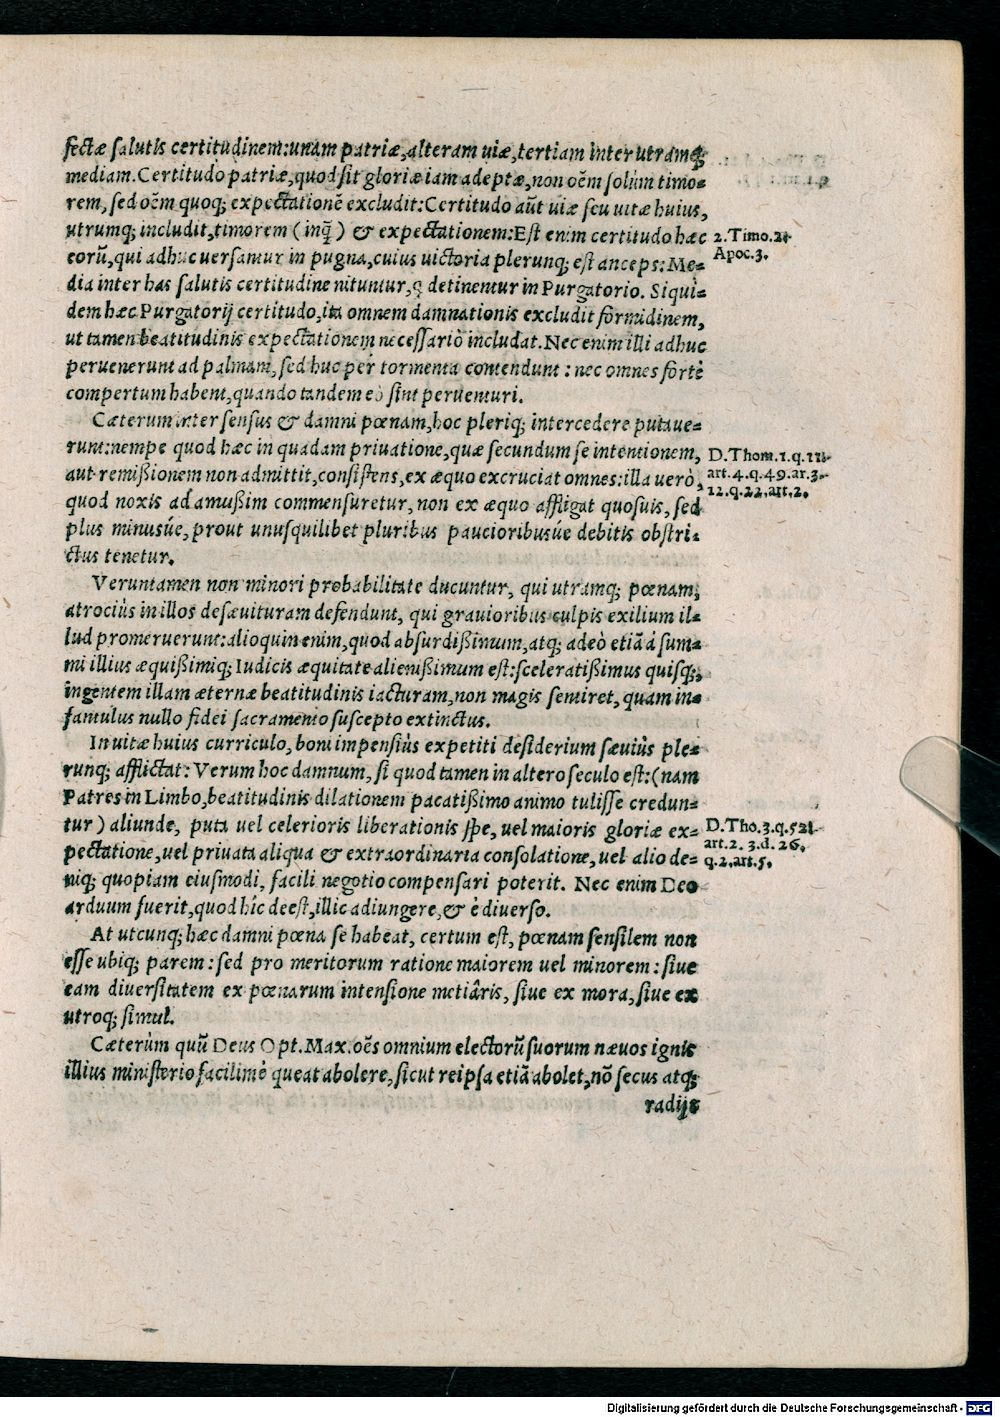 fectæ salutis certitudinem: unam patriæ, alteram uiæ, tertiam inter utramq;
mediam. Certitudo patriæ, quod sit gloriæ iam adeptæ, non oẽm solùm timo-
rem, sed oẽm quoq; expectationẽ excludit: Certitudo aũt uiæ seu uitæ huius,
utrumq; includit, timorem (inq̃) & expectationem: Est enim certitudo hæc
eorũ, qui adhuc uersantur in pugna, cuius uictoria plerunq; est anceps: Me-
dia inter has salutis certitudine nituntur, q̃ detinentur in Purgatorio. Siqui-
dem hæc Purgatorij certitudo, ita omnem damnationis excludit formidinem,
ut tamen beatitudinis expectationem necessariò includat. Nec enim illi adhuc
peruenerunt ad palmam, sed huc per tormenta contendunt: nec omnes fortè
compertum habent, quando tandem eò sint peruenturi.
2. Timo. 2.
Apoc. 3.
Cæterum inter sensus & damni pœnam, hoc pleriq; intercedere putaue-
runt: nempe quod hæc in quadam priuatione, quæ secundum se intentionem,
aut remißionem non admittit, consistens, ex æquo excruciat omnes: illa uerò,
quod noxis ad amußim commensuretur, non ex æquo affligat quosuis, sed
plus minusúe, prout unusquilibet pluribus paucioribusúe debitis obstri-
ctus tenetur.
D. Thom. 1. q. 11.
art. 4. q. 49. ar. 3.
12. q. 22. art. 2.
Veruntamen non minori probabilitate ducuntur, qui utramq; pœnam,
atrociùs in illos desæuituram defendunt, qui grauioribus culpis exilium il-
lud promeruerunt: alioquin enim, quod absurdißimum, atq; adeò etiã á sum-
mi illius æquißimiq; Iudicis æquitate alienißimum est: sceleratißimus quisq;,
ingentem illam æternæ beatitudinis iacturam, non magis sentiret, quam in-
fantulus nullo fidei sacramento suscepto extinctus.
In uitæ huius curriculo, boni impensiùs expetiti desiderium sæuiùs ple-
runq; afflictat: Verum hoc damnum, si quod tamen in altero seculo est: (nam
Patres in Limbo, beatitudinis dilationem pacatißimo animo tulisse credun-
tur) aliunde, puta uel celerioris liberationis spe, uel maioris gloriæ ex-
pectatione, uel priuata aliqua & extraordinaria consolatione, uel alio de-
niq; quopiam eiusmodi, facili negotio compensari poterit. Nec enim Deo
arduum fuerit, quod hîc deest, illic adiungere, & è diuerso.
D. Tho. 3. q. 52.
art. 2. 3. d. 26.
q. 2. art. 5.
At utcunq; hæc damni pœna se habeat, certum est, pœnam sensilem non
esse ubiq; parem: sed pro meritorum ratione maiorem uel minorem: siue
eam diuersitatem ex pœnarum intensione metiâris, siue ex mora, siue ex
utroq; simul.
Cæterùm quũ Deus Opt. Max. oẽs omnium electorũ suorum næuos ignis
illius ministerio facilimè queat abolere, sicut reipsa etiã abolet, nõ secus atq;
radijs
Digitalisierung gefördert durch die Deutsche Forschungsgemeinschaft - DFG